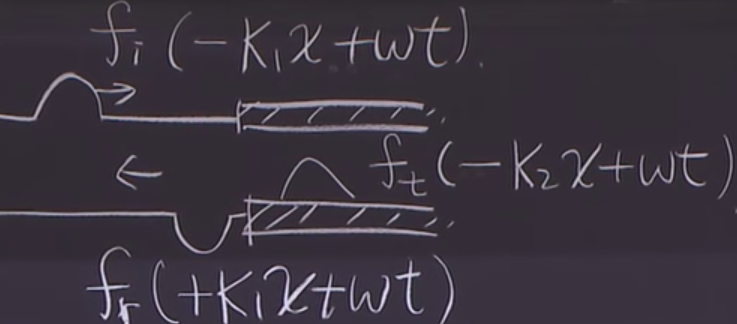 fᵢ(-K₁x+ωt)
fₜ(-K₂x+ωt)
fᵣ(+K₁x+ωt)